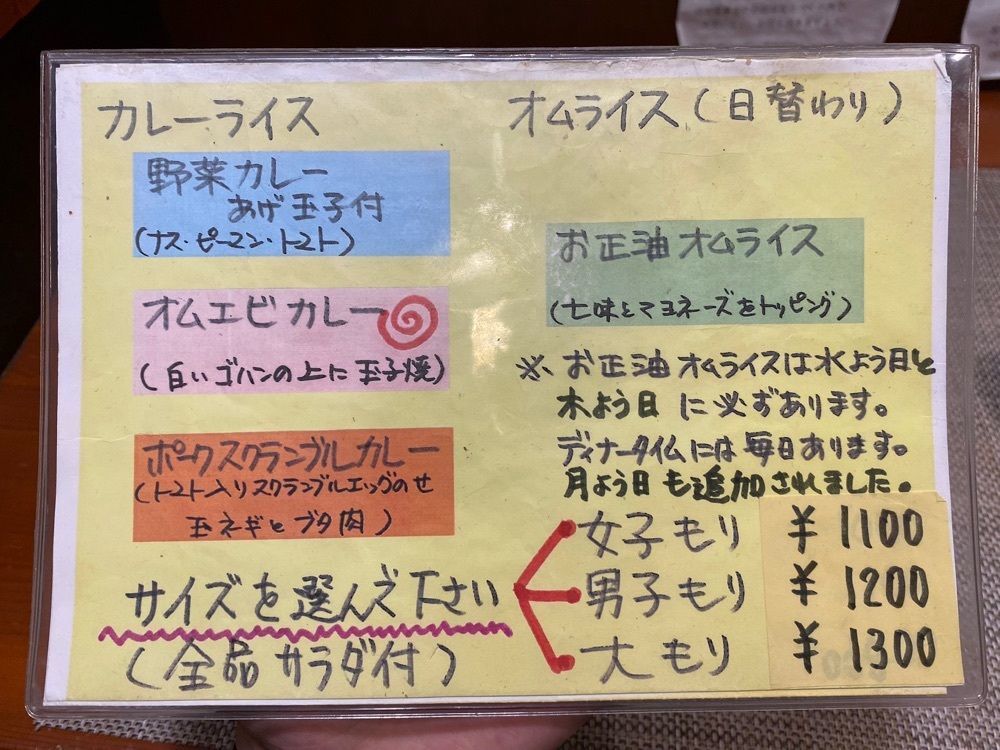 カレーライス
野菜カレー
あげ玉子付
(ナス・ピーマン・トマト)
オムエビカレー
(白いゴハンの上に玉子焼)
ポークスクランブルカレー
(トマト入リスクランブルエッグのせ
玉ネギとブタ肉)
オムライス(日替わり)
お正油オムライス
(七味とマヨネーズをトッピング)
※お正油オムライスは水よう日と
木よう日に必ずあります。
ディナータイムには毎日あります。
月よう日も追加されました。
サイズを選んで下さい
(全品サラダ付)
女子もり ¥1100
男子もり ¥1200
大もり ¥1300